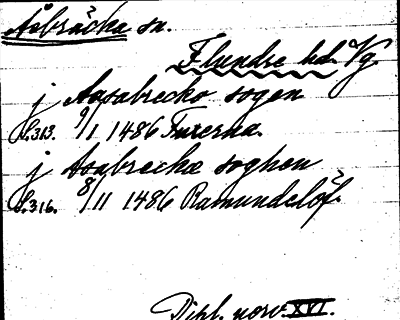 Åsbräcka sn.
Flundre hd. Vg.
j Aasabrecko sogen
S.313. 9/1 1486 Tuxerna.
j Asabrecka soghen
S.316. 8/11 1486 Ramundelöf.
Dipl. norv. XVI.